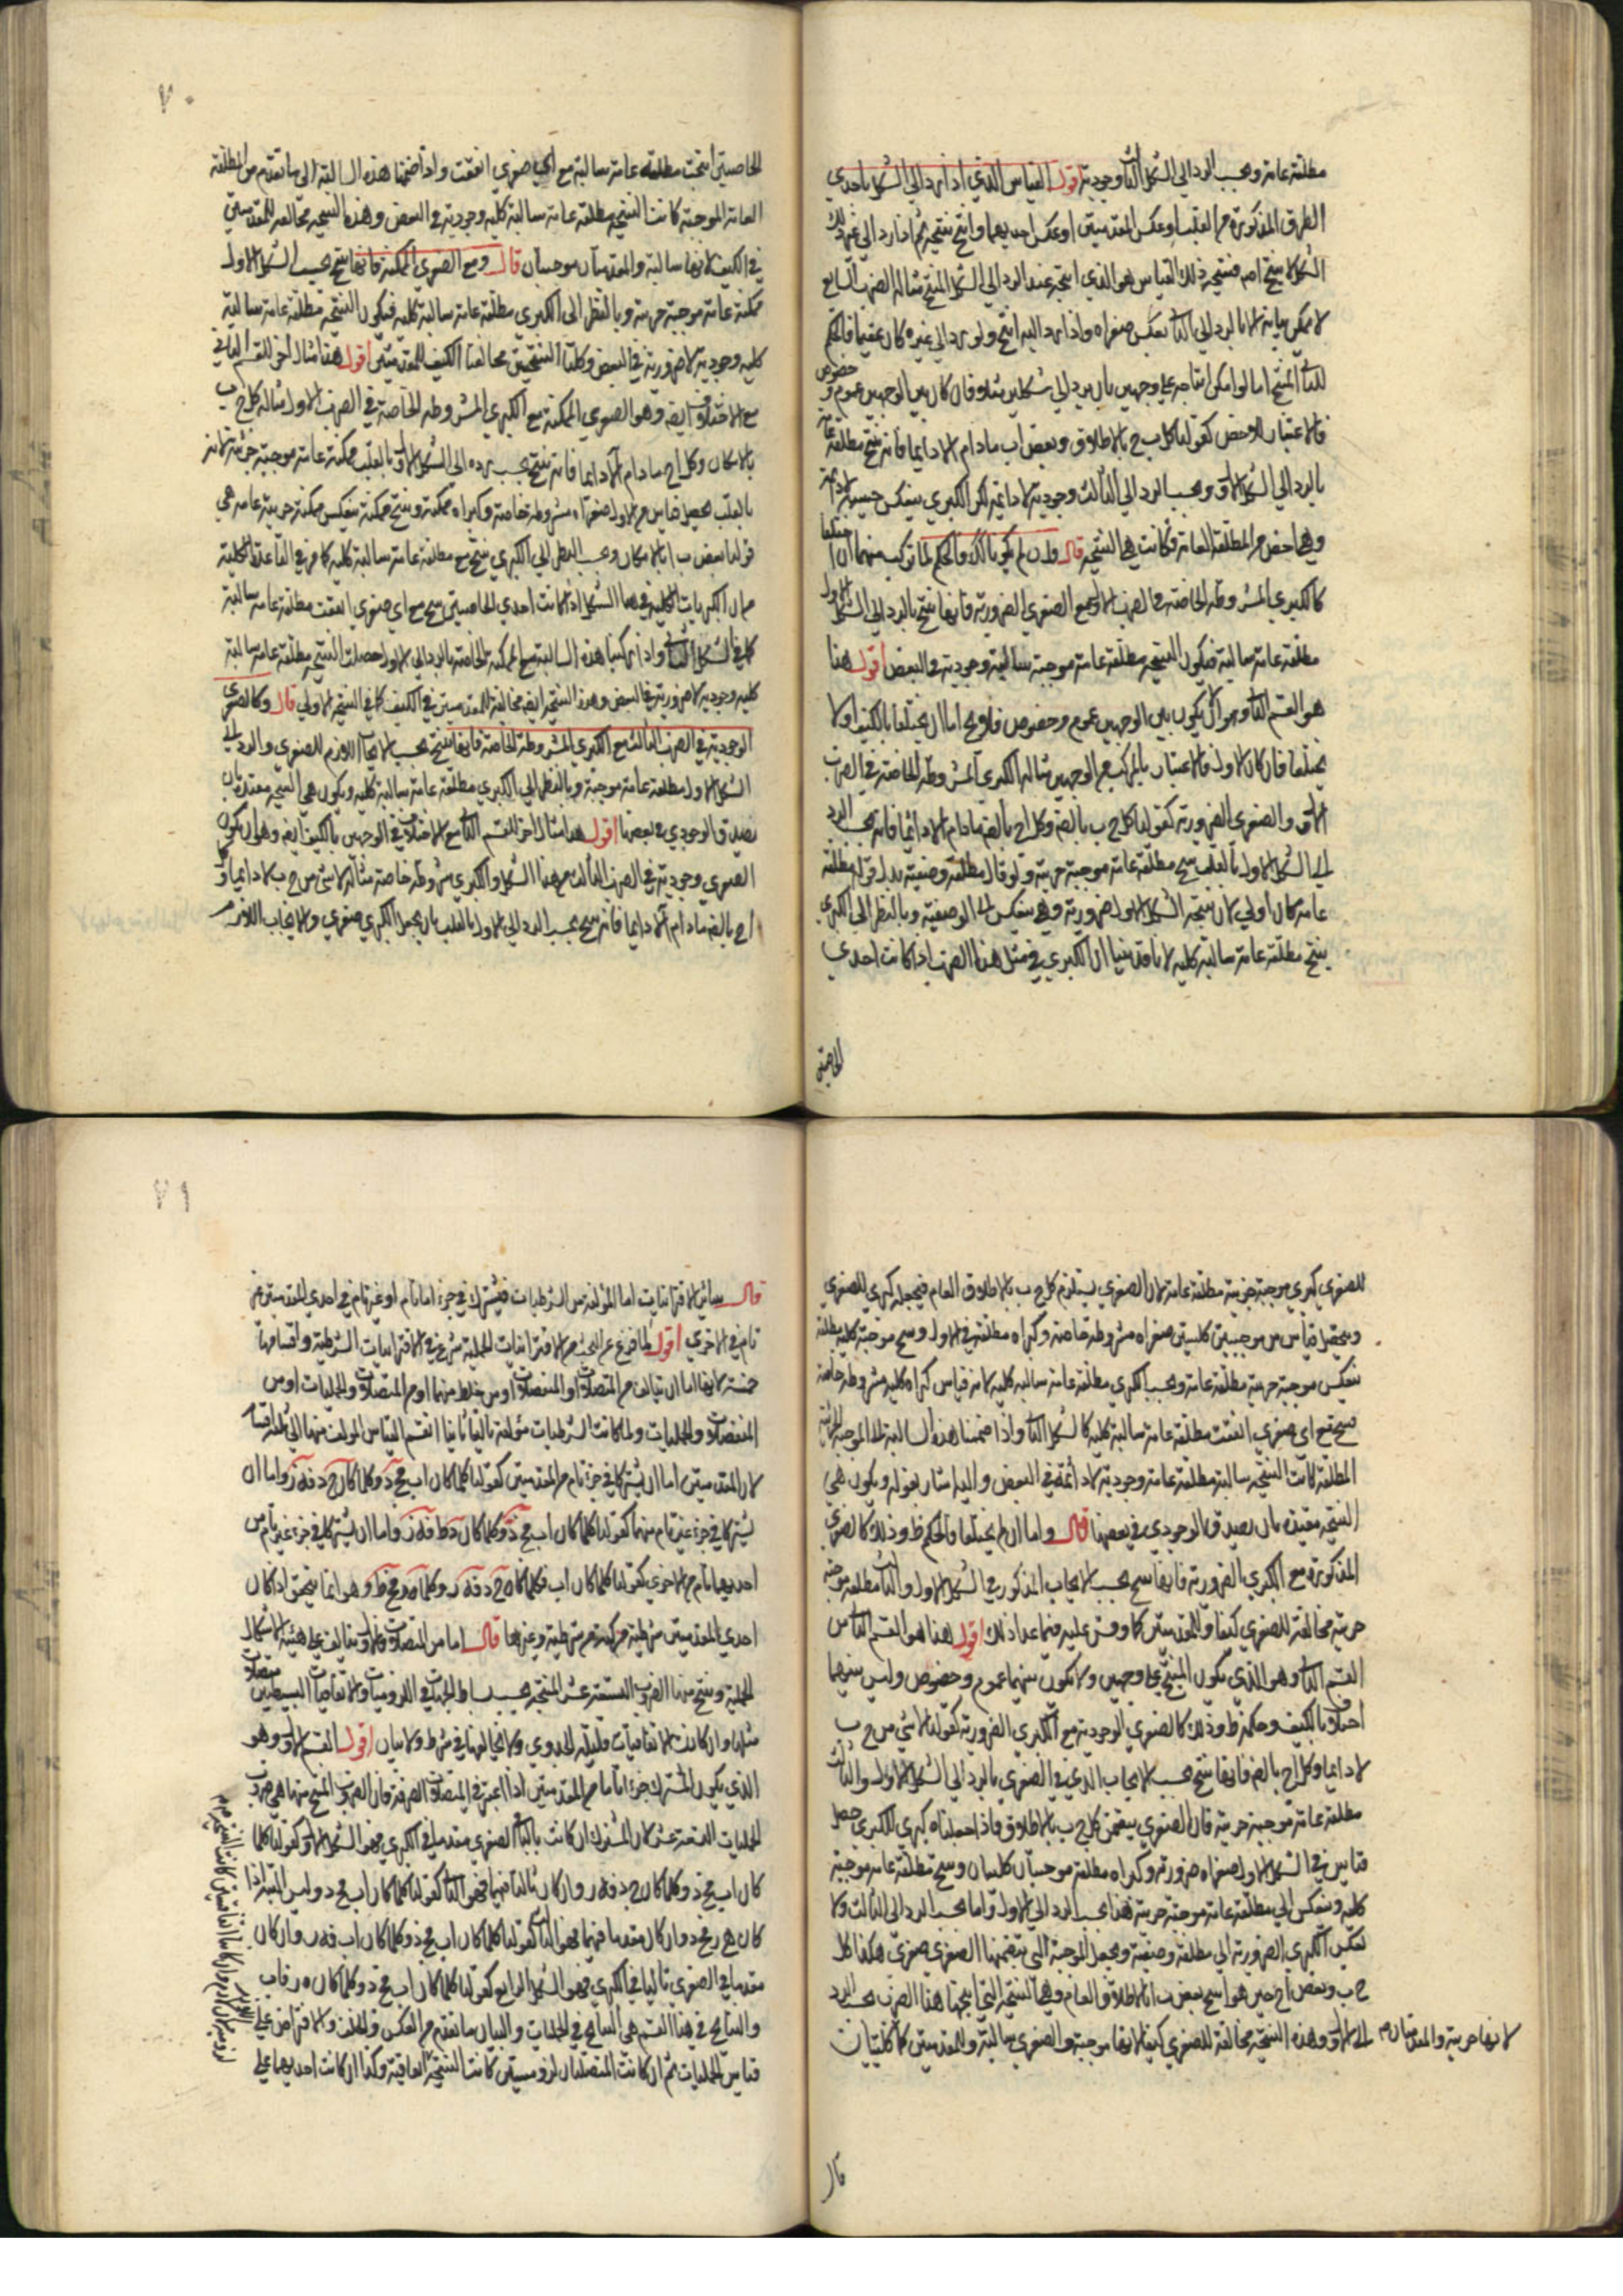 مطلقة عامة وبحسب الرد الى الشكل الثالث وجودية اقول القياس الذي اذا رد الى الشكل باحدي
الطرق المذكورة من القلب او عكس المقدمتين او عكس احديهما وانتج نتيجة ثم اذا رد الى غير ذلك
الشكل لا ينتج اصلا فنتيجة ذلك القياس هو الذي انتجه عند الرد الى الشكل المنتج مثاله الضرب السابع
لا يمكن بيانه الا بالرد الى الثالث بعكس صغراه واذا رد اليه انتج ولو رد الى غيره كان عقيما فالحكم
للثالث المنتج اما لو امكن انتاجه على وجهين بان يرد الى شكلين مثلا فان كان بين الوجهين عموم وخصوص
فالاعتبار للاخص كقولنا كل ب ج بالاطلاق وبعض اب مادام لا دايما فانه ينتج مطلقة عامة
بالرد الى الشكل الاول وبحسب الرد الى الثالث وجودية لا دايمة لان الكبرى ينعكس حينية لا دايمة
وهي اخص من المطلقة العامة فكانت هي النتيجة قال وان لم يكن كذلك والحكم لما تركب منهما ان اختلفا
كالكبرى المشروطة الخاصة في الضرب الاول مع الصغرى الضرورية فانها تنتج بالرد الى الشكل الاول
مطلقة عامة سالبة فيكون النتيجة مطلقة عامة موجبة سالبة وجودية في البعض اقول هذا
هو القسم الثاني وهو ان لا يكون بين الوجهين عموم وخصوص فلا يخ اما ان يختلفا بالكيف او لا
يختلفا فان كان الاول فالاعتبار بالمركب من الوجهين مثاله الكبرى المشروطة الخاصة في الضرب
الاول والصغرى الضرورية كقولنا كل ج ب بالضرورة وكل اج بالضرورة مادام لا دائما فانه بحسب الرد
الى الشكل الاول بالقلب ينتج مطلقة عامة موجبة جزئية ولو قال مطلقة وصفية بدل قوله مطلقة
عامة كان اولى لان نتيجة الشكل الاول ضرورية وهي ينعكس الى الوصفية وبالنظر الى الكبرى
ينتج مطلقة عامة سالبة كلية لانا قد بينا ان الكبرى في مثل هذا الضرب اذا كانت احدي
الخاصتين
٧٠
الخاصتين انتجت مطلقة عامة سالبة مع اي صغرى اتفقت واذا ضممنا هذه السالبة الى ما تقدم من المطلقة
العامة الموجبة كانت النتيجة مطلقة عامة سالبة كلية وجودية في البعض وهذه النتيجة مخالفة للمقدمتين
في الكيف لانها سالبة والمقدمتان موجبتان قال ومع الصغرى الممكنة فانها تنتج بحسب الشكل الاول
ممكنة عامة موجبة جزئية وبالنظر الى الكبرى مطلقة عامة سالبة كلية فيكون النتيجة مطلقة عامة سالبة
كلية وجودية لا ضرورية في البعض وكلتا النتيجتين مخالفتا الكيف للمقدمتين اقول هذا مثال اخر للقسم الثاني
مع الاختلاف ايضا وهو الصغرى الممكنة مع الكبرى المشروطة الخاصة في الضرب الاول مثاله كل ج ب
بالامكان وكل اج مادام لا دايما فانه ينتج بحسب رده الى الشكل الاول بالقلب ممكنة عامة موجبة جزئية لانه
بالقلب يحصل قياس من الاول صغراه مشروطة خاصة وكبراه ممكنة وينتج ممكنة ينعكس ممكنة جزئية عامة هي
قولنا بعض ب ا بالامكان وبحسب النظر الى الكبرى ينتج مطلقة عامة سالبة كلية كما مر في القاعدة الكلية
من ان الكبريات الكلية في هذا الشكل اذا كانت احدي الخاصتين ينتج مع اي صغرى اتفقت مطلقة عامة سالبة
كما في الشكل الثاني واذا ركبنا هذه السالبة مع الممكنة الخاصة بالرد الى الاول حصلت النتيجة مطلقة عامة سالبة
كلية وجودية لا ضرورية في البعض وهذه النتيجة ايضا مخالفة للمقدمتين في الكيف كما في النتيجة الاولى قال وكالصغرى
الوجودية في الضرب الثالث مع الكبرى المشروطة الخاصة فانها تنتج بحسب الايجاب اللازم للصغرى والرد الى
الشكل الاول مطلقة عامة موجبة وبالنظر الى الكبرى مطلقة عامة سالبة كلية ويكون هي النتيجة مقيدة بان
يصدق الوجودي في بعضها اقول هذا مثال اخر للقسم الثاني مع الاختلاف في الوجهين بالكيف ايضا وهو ان يكون
الصغرى وجودية في الضرب الثالث من هذا الشكل والكبرى مشروطة خاصة مثاله لا شئ من ج ب لا دايما وكل
اج بالضرورة مادام لا دايما فانه ينتج بحسب الرد الى الاول بالقلب بان يجعل الكبرى صغرى والايجاب اللازم
للصغرى كبرى موجبة جزئية مطلقة عامة لان الصغرى يستلزم كل ج ب بالاطلاق العام فيجعله كبرى للصغرى
ويحصل قياس من موجبتين كليتين صغراه مشروطة خاصة وكبراه مطلقة في الاول وينتج موجبة كلية مطلقة
تنعكس موجبة جزئية مطلقة عامة وبحسب الكبرى مطلقة عامة سالبة كلية لانه قياس كبراه كلية مشروطة خاصة
ينتج مع اي صغرى اتفقت مطلقة عامة سالبة كلية كالشكل الثاني واذا ضممنا هذه السالبة الى الموجبة الجزئية
المطلقة كانت النتيجة سالبة مطلقة عامة وجودية لا دائمة في البعض واليه اشار بقوله ويكون هي
النتيجة مقيدة بان يصدق الوجودي في بعضها قال واما ان لم يختلفا والحكم ظ وذلك كالصغرى
المذكورة مع الكبرى الضرورية فانها تنتج بحسب الايجاب المذكور في الشكل الاول والثالث مطلقة موجبة
جزئية مخالفة للصغرى كيفا وللمقدمتين كما وقس عليه فيما عدا ذلك اقول هذا هو القسم الثاني من
القسم الثاني وهو الذي يكون المنتج على وجهين ولا يكون بينهما عموم وخصوص وليس بينهما
اختلاف بالكيف وحكمه ظ وذلك كالصغرى الوجودية مع الكبرى الضرورية كقولنا لا شئ من ج ب
لا دايما وكل اج بالضرورة فانها تنتج بحسب الايجاب الذي في الصغرى بالرد الى الشكل الاول والثالث
مطلقة عامة موجبة جزئية فان الصغرى يتضمن كل ج ب بالاطلاق فاذا جعلناه كبرى للكبرى حصل
قياس في الشكل الاول صغراه ضرورية وكبراه مطلقة موجبتان كليتان وينتج مطلقة عامة موجبة
كلية وينعكس الى مطلقة عامة موجبة جزئية هذا بحسب الرد الى الاول واما بحسب الرد الى الثالث فلا
نعكس الكبرى الضرورية الى مطلقة وصفية ونجعل الموجبة التي يتضمنها الصغرى صغرى هكذا كل
ج ب وبعض ج ا حين هو ا ينتج بعض ب ا بالاطلاق العام وهي النتيجة التي انتجها هذا الضرب بحسب الرد
الى الاول وهذه النتيجة مخالفة للصغرى كيفا لانها موجبة والصغرى سالبة وللمقدمتين كما كليتان
لانها جزئية والمقدمتان
قال
٧١
قال سائر الاقترانيات اما المؤلفة من الشرطيات فيشترك في جزء اما تام او غير تام في احدي المقدمتين
تام في الاخرى اقول لما فرغ عن البحث من الاقترانيات الحملية شرع في الاقترانيات الشرطية واقسامها
خمسة لانها اما ان يتالف من المتصلات او المنفصلات او من خلط منهما او من المتصلات والحمليات او من
المنفصلات والحمليات ولما كانت الشرطيات مؤلفة تاليفا ثانيا انقسم القياس المولف منهما الى ثلثة اقسام
لان المقدمتين اما ان يشتركا في جزء تام من المقدمتين كقولنا كلما كان اب فج د وكلما كان ج د فه ز واما ان
يشتركا في جزء غير تام منهما كقولنا كلما كان اب فج د وكلما كان د ط فه ز واما ان يشتركا في جزء غير تام من
احديهما تام من الاخرى كقولنا كلما كان اب فكلما كان ج د فه ز وكلما ه ز فج ط وهو انما يتحقق اذا كان
احدي المقدمتين شرطية مركبة من شرطية وغيرها قال اما من المتصلات فالاول يتالف على هيئة الاشكال
الحملية وينتج منها الضروب التسعة عشر المنتجة بحسب بسائط الجهات في اللزوميات والاتفاقيات البسيطين متصلات
مثلها وان كانت الاتفاقيات قليلة الجدوى ولا يخالفها في شرط ولا بيان اقول القسم الاول وهو
الذي يكون المشترك جزءا تاما من المقدمتين اذا اعتبر في المتصلات الصرفة فان الضروب المنتج منها هي ضروب
الحمليات التسعة عشر لان المشترك ان كانت تاليا في الصغرى مقدما في الكبرى فهو الشكل الاول كقولنا كلما
كان اب فج د وكلما كان ج د فه ز وان كان تاليا فيهما فهو الثاني كقولنا كلما كان اب فج د وليس البتة اذا
كان ه ز فج د وان كان مقدما فيهما فهو الثالث كقولنا كلما كان اب فج د وكلما كان اب فه ز وان كان
مقدما في الصغرى تاليا في الكبرى فهو الشكل الرابع كقولنا كلما كان اب فج د وكلما كان ه ز فاب
والنتايج في هذا القسم هي النتايج في الحمليات والبيان ما تقدم من العكس والخلف والافتراض على
قياس الحمليات ثم ان كانت المتصلتان لزوميتين كانت النتيجة اتفاقية وكذا ان كانت احديهما على